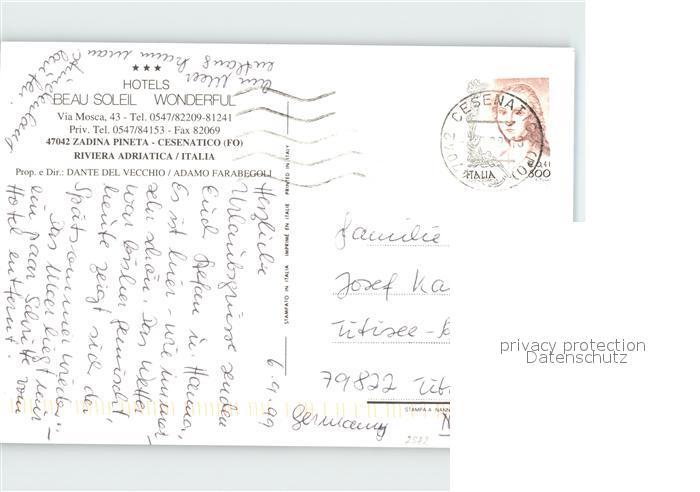 ★★★
HOTELS
BEAU SOLEIL WONDERFUL
Via Mosca, 43 - Tel. 0547/82209-81241
Priv. Tel. 0547/84153 - Fax 82069
47042 ZADINA PINETA - CESENATICO (FO)
RIVIERA ADRIATICA / ITALIA
Prop. e Dir.: DANTE DEL VECCHIO / ADAMO FARABEGOLI
6.9.99
Herzliche
Urlaubsgrüsse senden
Euch Stefan u. Hanna,
Es ist hier - wie immer
sehr schön. Das Wetter
war bisher gemischt,
heute zeigt sich der
Spätsommer wieder.
Das Meer liegt nur
ein paar Schritte vom
Hotel entfernt.
am Meer
entlang kann man
STAMPATO IN ITALIA IMPRIMÉ EN ITALIE PRINTED IN ITALY
CESENATICO
47042
ITALIA
€ 0,41
800
Familie
Josef Ka
Titisee-
79822 Tit
Germany N
STAMPA A NANN
2572
privacy protection
Datenschutz